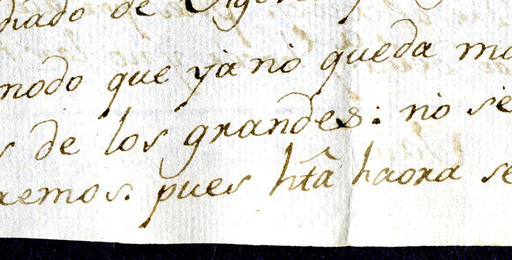 diado de
modo que ya no queda
de los grandes: no se
remos. pues hta haora se